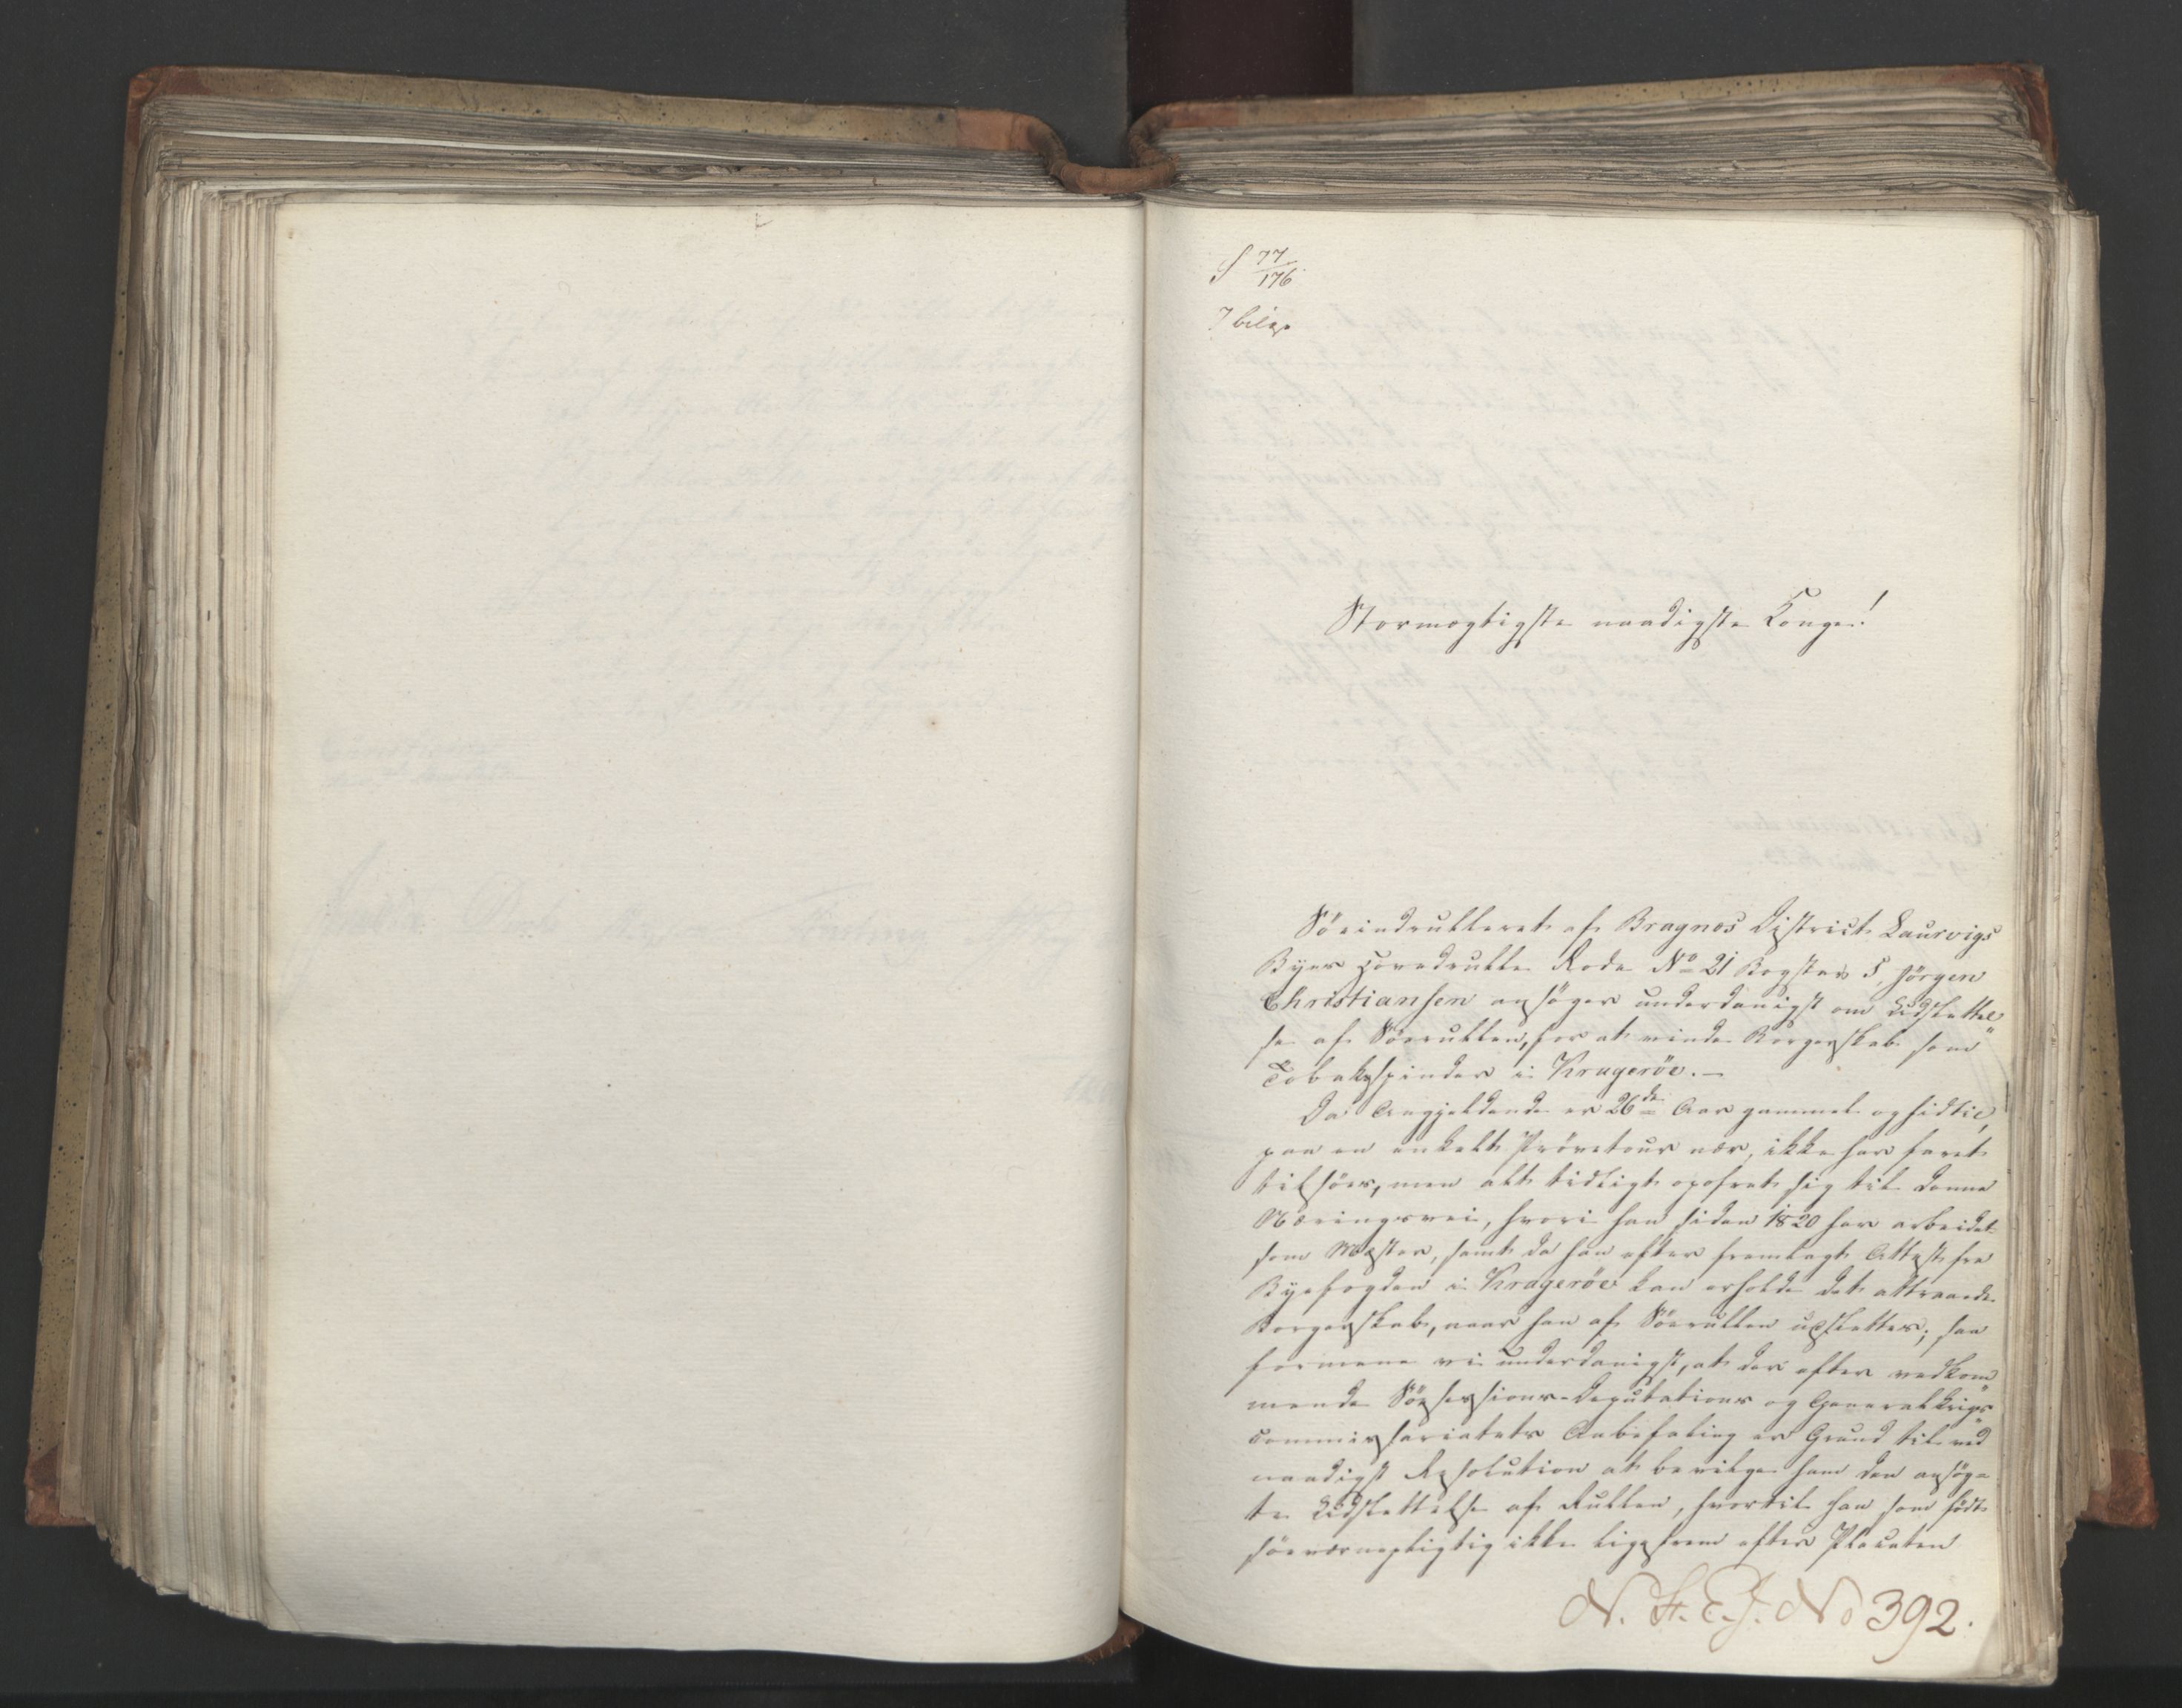 S 77/176
7 bilag
Stormægtigste naadigste Konge!
Söeindrulleret af Bragnes District Laurvigs
Byes Hovedrulle Rode No 21 Bogstav S, Jörgen
Christiansen ansöger underdanigst om Udslettel„
se af Söerullen, for at vinde Borgerskab som
Tobakspinder i Krageröe. —
Da Angjeldende er 26de Aar gammel og hidtil,
paa en enkelt Prövetour nær, ikke har faret
tilsöes, men alt tidligt opofret sig til denne
Næringsvei, hvori han siden 1820 har arbeidet
som Mester, samt da han efter fremlagt Attest fra
Byefogden i Krageröe kan erholde det attraaede
Borgerskab, naar han af Söerullen udslettes; saa
formene vi underdanigst, at der efter vedkom„
mende Söesessions-Deputations og Generalkrigs
commissariatets Anbefaling er Grund til ved
naadigst Resolution at bevilge ham den ansög-
te Udslettelse af Rullen, hvortil han som födt
söeværnepligtig ikke ligefrem efter Placaten
N. St. E. J. No 392.